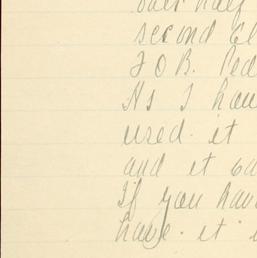 half
second
F.O.B.
As I hav
used. it
and it
If you hav
have. it